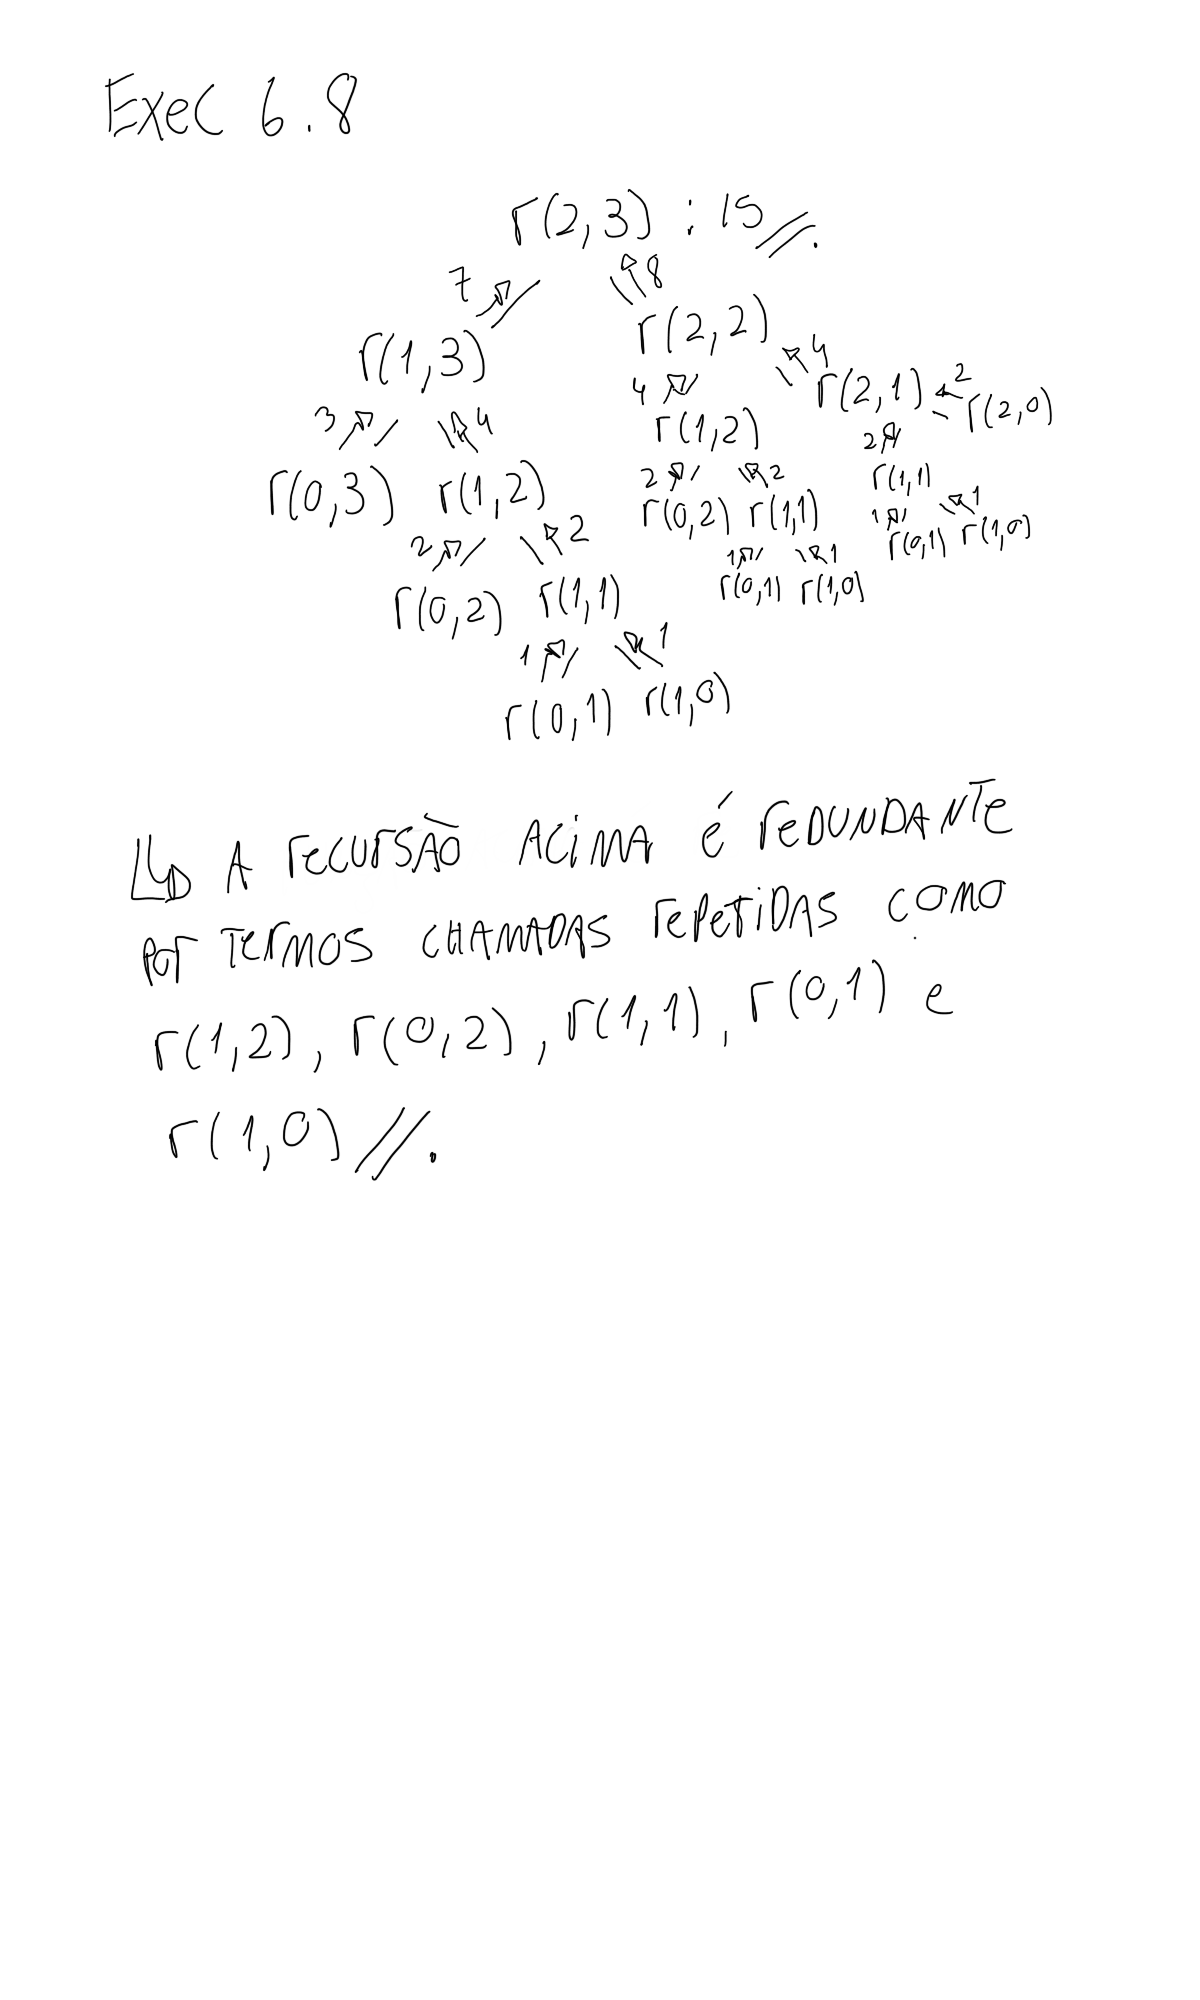 Exec 6.8
r(2,3) : 15//.
7 8
r(1,3) r(2,2)
3 4 4 4
r(0,3) r(1,2) r(1,2) r(2,1) 2 r(2,0)
2 2 2 2 2
r(0,2) r(1,1) r(0,2) r(1,1) r(1,1)
1 1 1 1 1 1
r(0,1) r(1,0) r(0,1) r(1,0) r(0,1) r(1,0)
A recursão acima é redundante
por termos chamadas repetidas como
r(1,2), r(0,2), r(1,1), r(0,1) e
r(1,0)//.